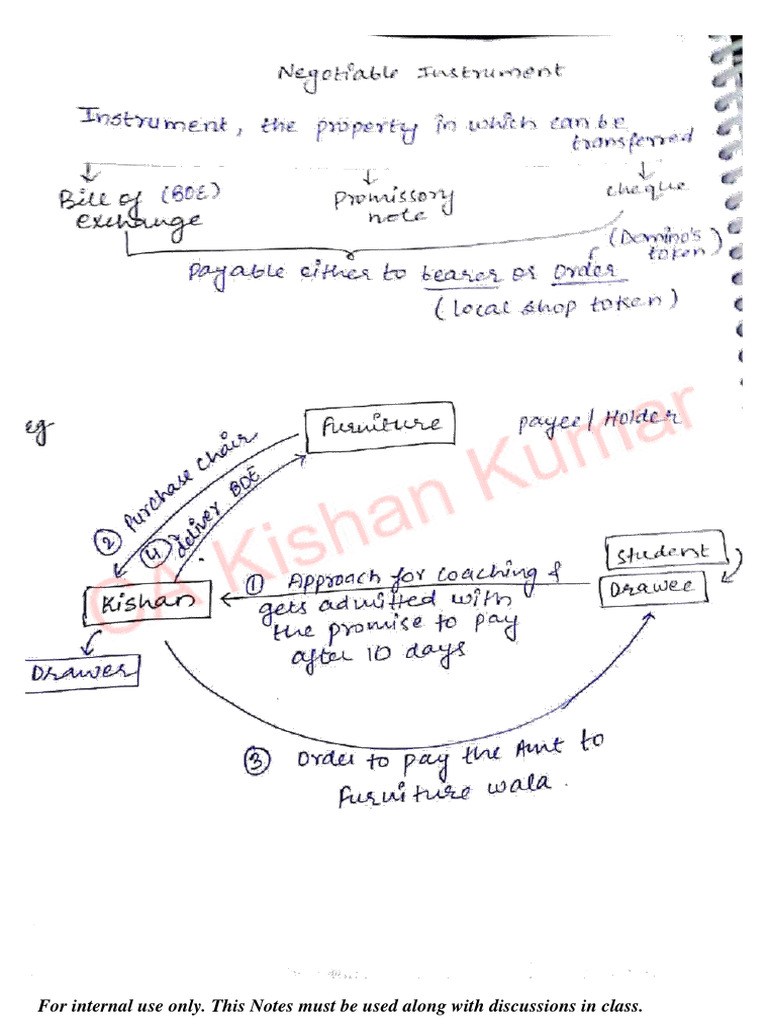 Negotiable Instrument
Instrument, the property in which can be
transferred
Bill of (BOE)
exchange
promissory
note
cheque
(Domino's
token)
Payable either to bearer or order
(local shop token)
eg
furniture
payee/Holder
② Purchase chair
④ deliver BOE
Student
Drawee
Kishan
① Approach for coaching &
gets admitted with
the promise to pay
after 10 days
Drawer
③ Order to pay the Amt to
furniture wala.
CA Kishan Kumar
For internal use only. This Notes must be used along with discussions in class.